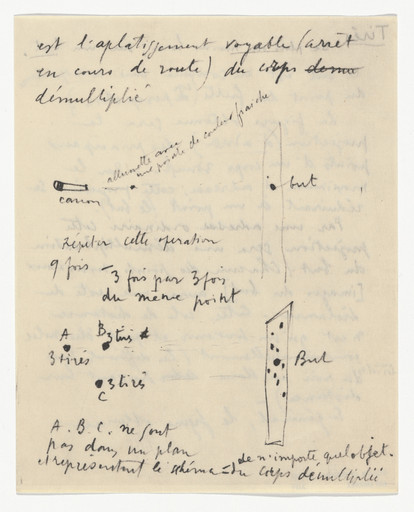 est l'aplatissement voyable (arrêt
en cours de route) du corps demu
démultiplié
allumette avec
une pointe de couleur fraiche
canon
but
Répéter cette operation
9 fois – 3 fois par 3 fois
du meme point
A
B 3 tirs
3 tirés
3 tirés
C
But
A. B. C. ne sont
pas dans un plan
et représentent le schéma = du corps démultiplié
de n'importe quel objet.